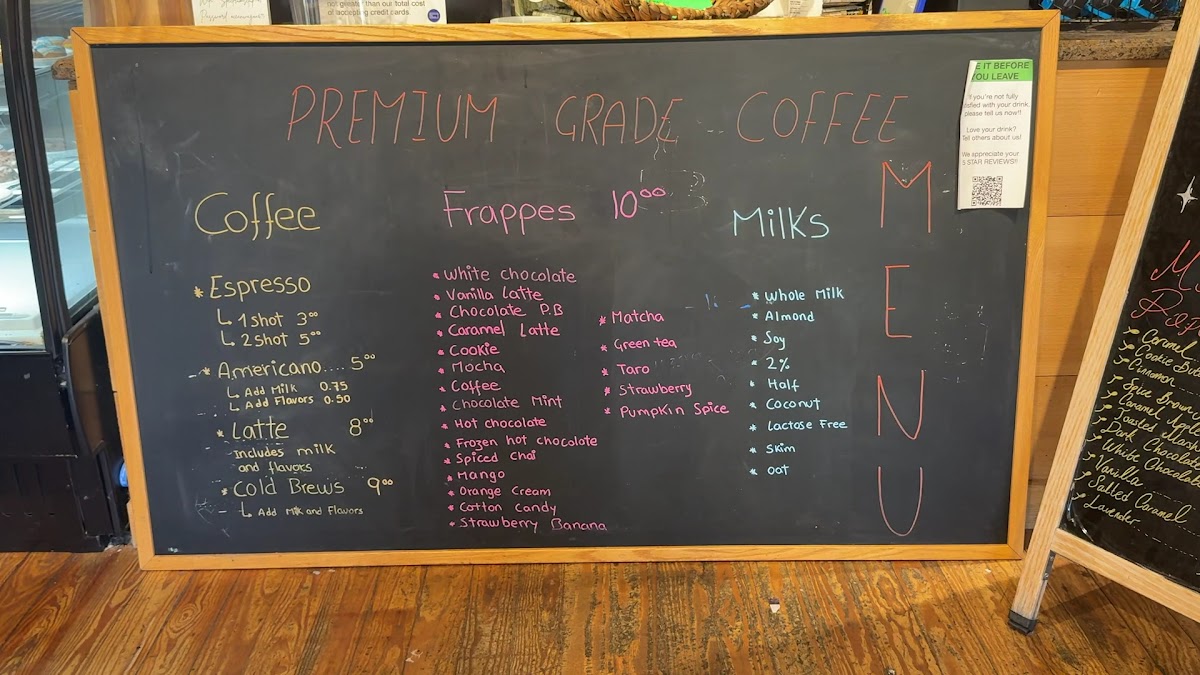 not greater than our total cost
of accepting credit cards.
PREMIUM GRADE COFFEE
MENU
Coffee
* Espresso
↳ 1 shot 3.00
↳ 2 shot 5.00
* Americano.... 5.00
↳ Add Milk 0.75
↳ Add Flavors 0.50
* Latte 8.00
Includes milk
and flavors
* Cold Brews 9.00
↳ Add Milk and Flavors
Frappes 10.00
* White chocolate
* Vanilla Latte
* Chocolate P.B
* Caramel Latte
* Cookie
* Mocha
* Coffee
* Chocolate Mint
* Hot chocolate
* Frozen hot chocolate
* Spiced Chai
* Mango
* Orange Cream
* Cotton Candy
* Strawberry Banana
* Matcha
* Green tea
* Taro
* Strawberry
* Pumpkin Spice
Milks
* Whole Milk
* Almond
* Soy
* 2%
* Half
* Coconut
* Lactose Free
* Skim
* oat
E IT BEFORE
OU LEAVE
If you're not fully
tisfied with your drink,
please tell us now!!
Love your drink?
Tell others about us!
We appreciate your
5 STAR REVIEWS!!
Caramel
Cookie
Cinnamon
Spice Brown
Caramel Apple
Toasted
Dark Chocolate
White Chocola
Vanilla
Salted Caramel
Lavender